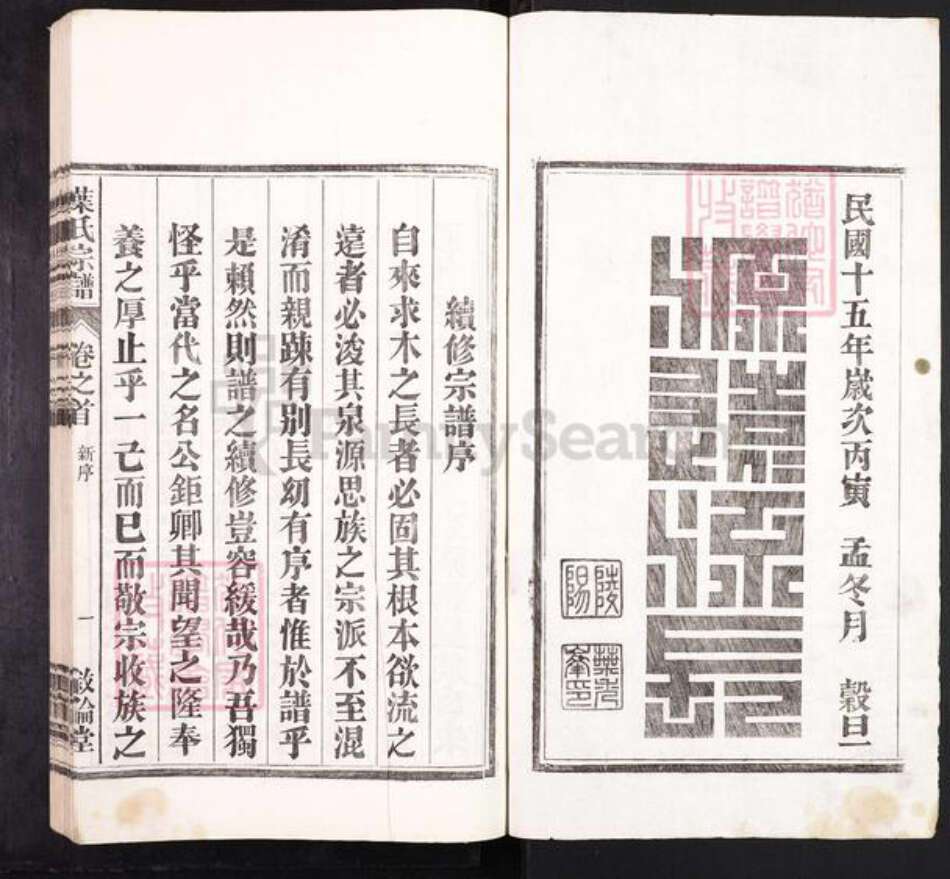 民國十五年歲次丙寅 孟冬月 穀旦
源清流長
續修宗譜序
自來求木之長者必固其根本欲流之
遠者必浚其泉源思族之宗派不至混
淆而親踈有别長幼有序者惟於譜乎
是賴然則譜之續修豈容緩哉乃吾獨
怪乎當代之名公鉅卿其聞望之隆奉
養之厚止乎一己而已而敬宗收族之
葉氏宗譜 卷之首 新序 一
FamilySearch